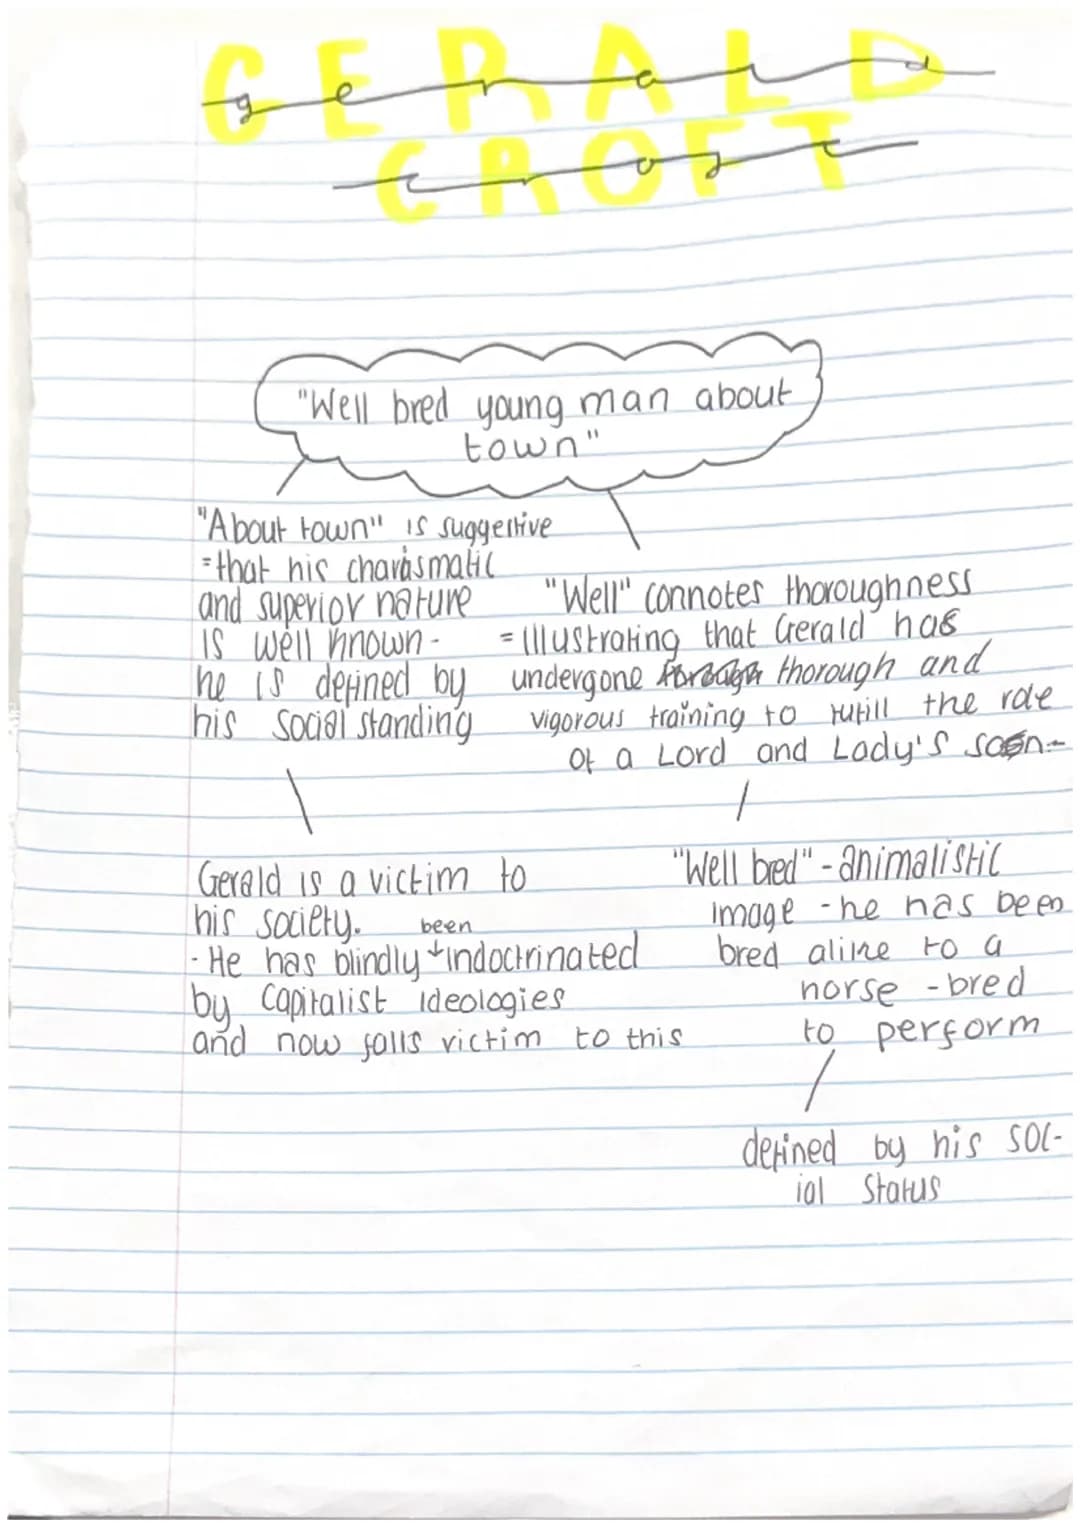 GERALD
gerald
CROFT
croft
"Well bred young man about
town"
"About town" is suggestive
=that his charasmatic
and superior nature
is well known -
he is defined by
his social standing
"Well" connotes thoroughness
=illustrating that Gerald has
undergone thorough and
vigorous training to fufill the role
of a Lord and Lady's son-
Gerald is a victim to
his society.
been
- He has blindly indoctrinated
by Capitalist ideologies
and now falls victim to this
"Well bred" - animalistic
image - he has been
bred alike to a
horse - bred
to perform
defined by his soc-
ial status